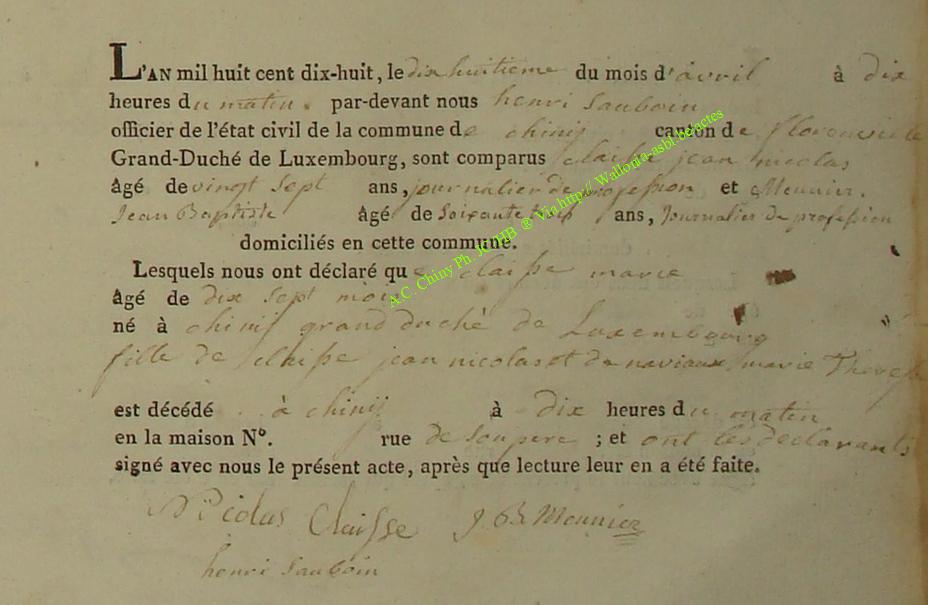 L'AN mil huit cent dix-huit, le dix huitieme du mois d'avril à dix
heures du matin. par-devant nous henri Sauboin
officier de l'état civil de la commune de chinij canton de florenville
Grand-Duché de Luxembourg, sont comparus claisse jean nicolas
âgé de vingt sept ans, journalier de profession et Meunier.
Jean Baptiste âgé de Soixante ans, Journalier de profession
domiciliés en cette commune.
Lesquels nous ont déclaré que claisse marie
âgé de dix sept mois
né à chinij grand duché de Luxembourg
fille de claisse jean nicolas et de naviaux marie Therese
est décédé à chinij à dix heures du matin
en la maison N°. rue de ; et ont les declarants
signé avec nous le présent acte, après que lecture leur en a été faite.
Nicolas Claisse J B Meunier
henri Sauboin
A.C. Chiny Ph. JCHB ® Via http:// Wallonia-asbl.be/actes